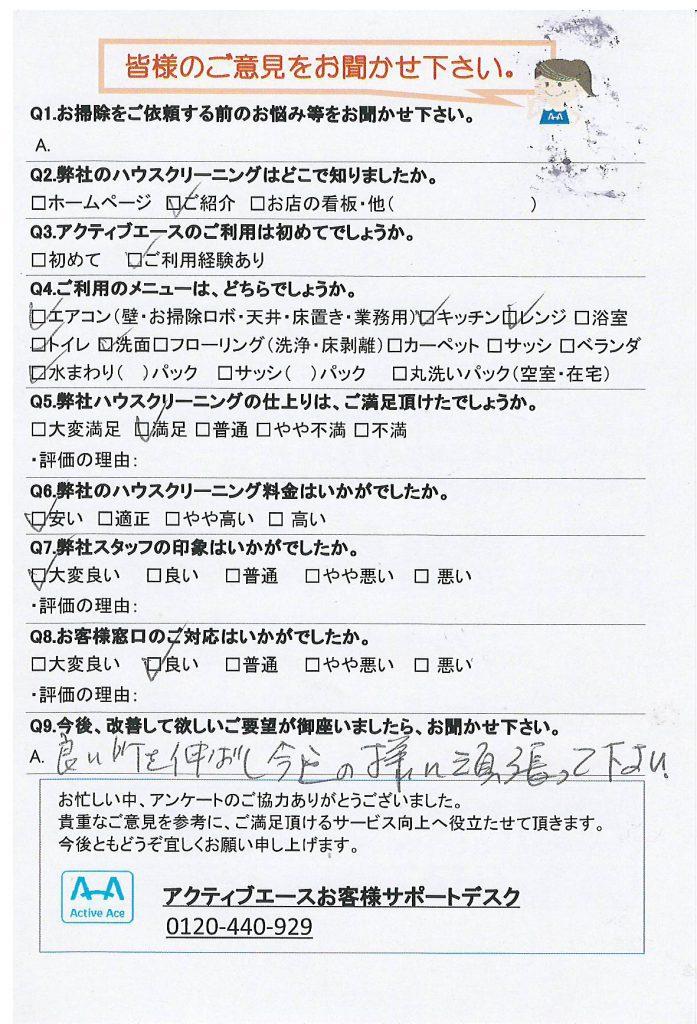 皆様のご意見をお聞かせ下さい。
Q1.お掃除をご依頼する前のお悩み等をお聞かせ下さい。
A.
Q2.弊社のハウスクリーニングはどこで知りましたか。
□ホームページ ☑ご紹介 □お店の看板・他( )
Q3.アクティブエースのご利用は初めてでしょうか。
□初めて ☑ご利用経験あり
Q4.ご利用のメニューは、どちらでしょうか。
☑エアコン(壁・お掃除ロボ・天井・床置き・業務用)☑キッチン☑レンジ □浴室
☑トイレ ☑洗面□フローリング(洗浄・床剥離)□カーペット □サッシ □ベランダ
☑水まわり( )パック □サッシ( )パック □丸洗いパック(空室・在宅)
Q5.弊社ハウスクリーニングの仕上りは、ご満足頂けたでしょうか。
□大変満足 ☑満足 □普通 □やや不満 □不満
・評価の理由:
Q6.弊社のハウスクリーニング料金はいかがでしたか。
☑安い □適正 □やや高い □ 高い
Q7.弊社スタッフの印象はいかがでしたか。
☑大変良い □良い □普通 □やや悪い □ 悪い
・評価の理由:
Q8.お客様窓口のご対応はいかがでしたか。
□大変良い ☑良い □普通 □やや悪い □ 悪い
・評価の理由:
Q9.今後、改善して欲しいご要望が御座いましたら、お聞かせ下さい。
A. 良い所を伸ばし今迄の様に頑張って下さい
お忙しい中、アンケートのご協力ありがとうございました。
貴重なご意見を参考に、ご満足頂けるサービス向上へ役立たせて頂きます。
今後ともどうぞ宜しくお願い申し上げます。
Active Ace
アクティブエースお客様サポートデスク
0120-440-929